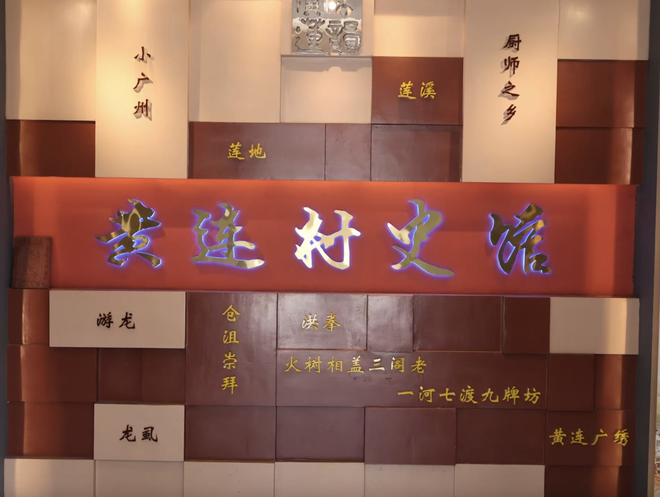 小广州
厨师之乡
莲溪
莲地
黄连村史馆
游龙
仓沮崇拜
洪拳
火树相盖三阁老
一河七渡九牌坊
龙虱
黄连广绣